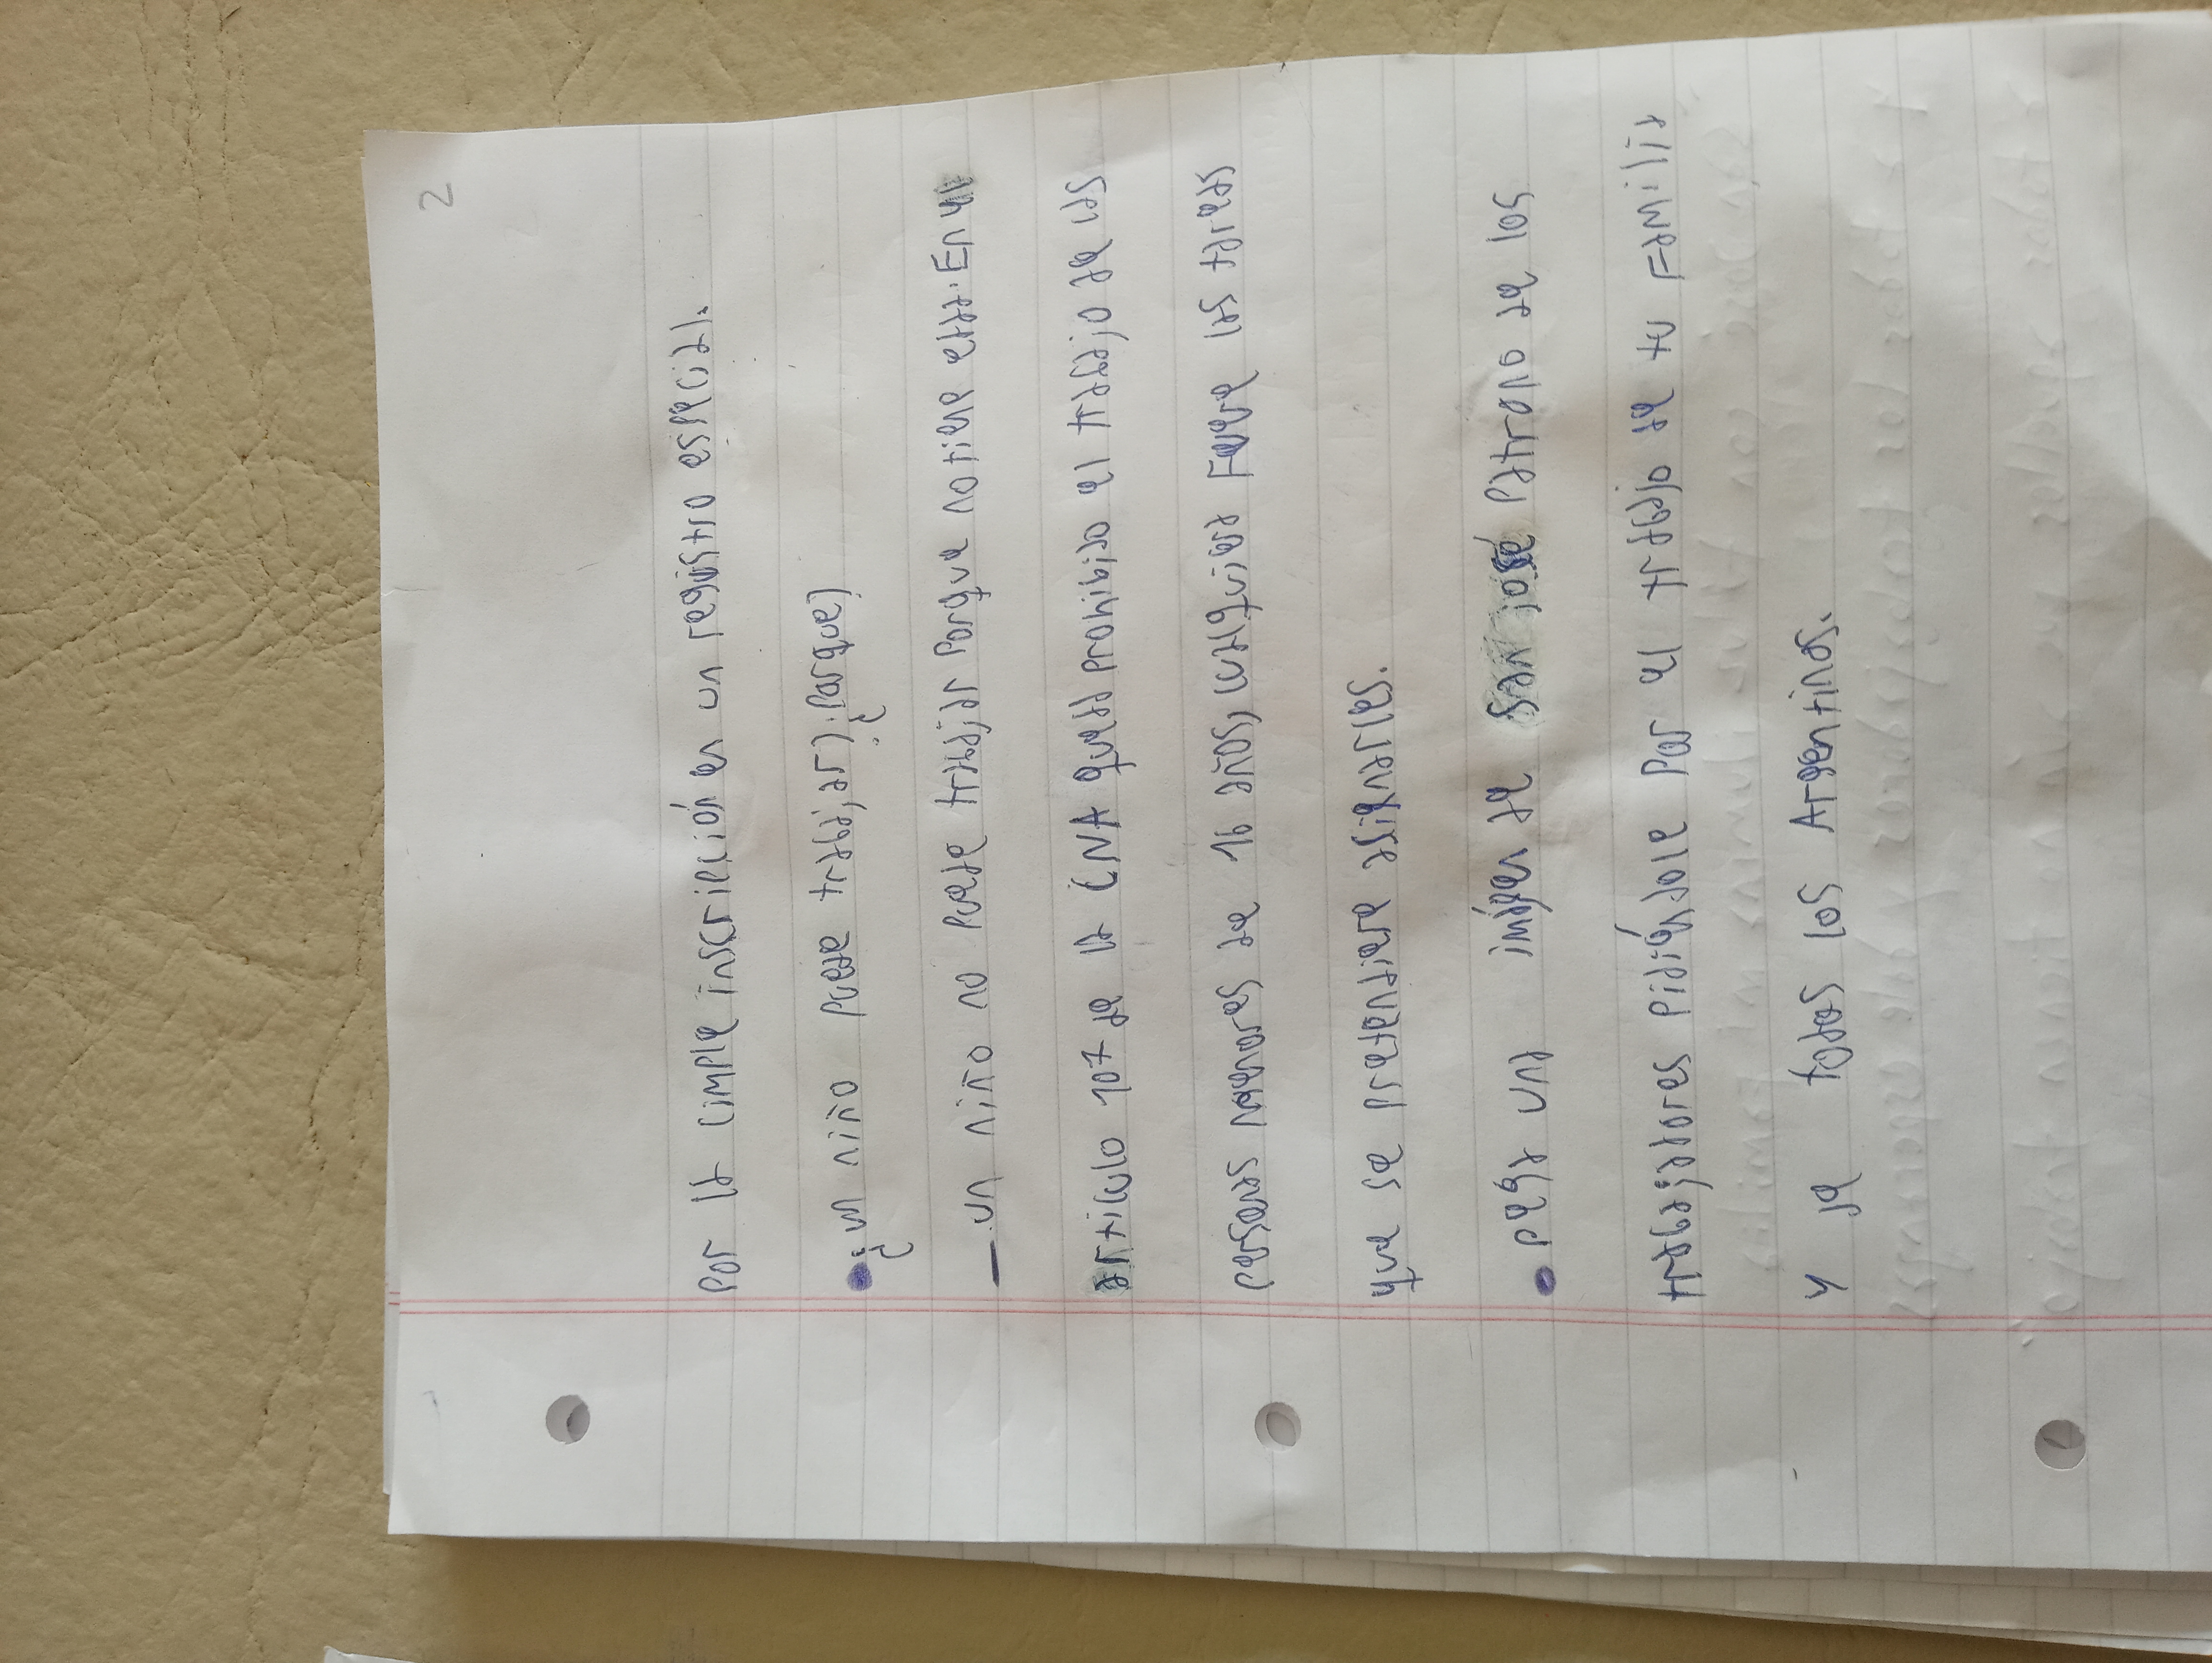 2
por la cimple inscripción en un registro especial.
• ¿un niño puede trabajar? ¿porque?
— un niño no puede trabajar porque no tiene edad. En el
articulo 107 de la (NA) queda prohibido el trabajo de las
personas menores de 16 años, cualquiera Fuere las tareas
que se pretendiera asignarsele.
• pega una imágen de San José patrono de los
trabajadores pidiéndole por el trabajo de tu Familia
y de todos los Argentinos.